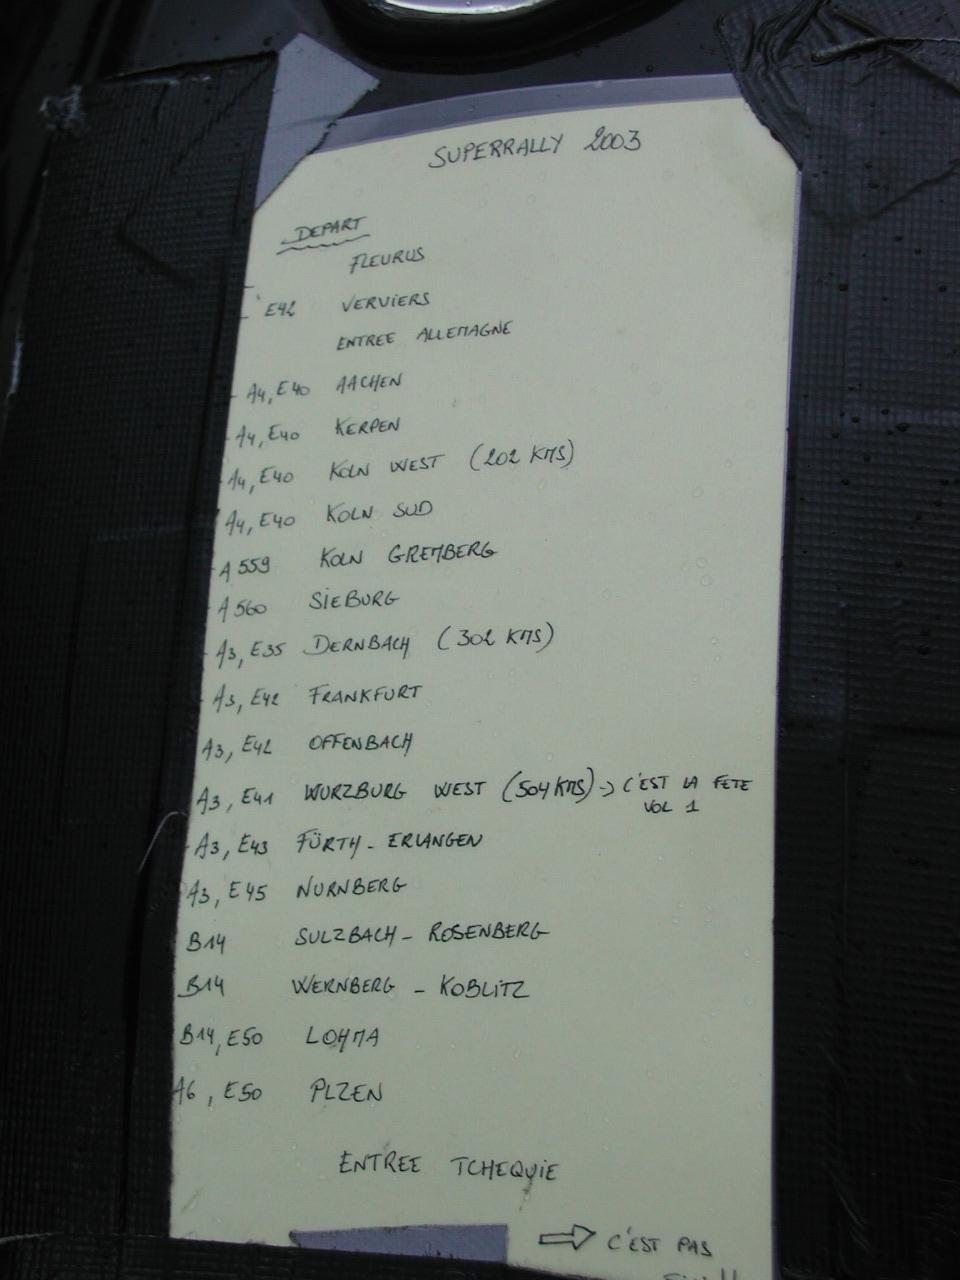 SUPERRALLY 2003
DEPART
FLEURUS
E42 VERVIERS
ENTREE ALLEMAGNE
A4, E40 AACHEN
A4, E40 KERPEN
A4, E40 KOLN WEST (202 KMS)
A4, E40 KOLN SUD
A 559 KOLN GREMBERG
A 560 SIEBURG
A3, E35 DERNBACH (302 KMS)
A3, E42 FRANKFURT
A3, E42 OFFENBACH
A3, E41 WURZBURG WEST (504 KMS) -> C'EST LA FETE
VOL 1
A3, E43 FÜRTH - ERLANGEN
A3, E45 NURNBERG
B14 SULZBACH - ROSENBERG
B14 WERNBERG - KOBLITZ
B14, E50 LOHMA
A6, E50 PLZEN
ENTREE TCHEQUIE
⇒ C'EST PAS